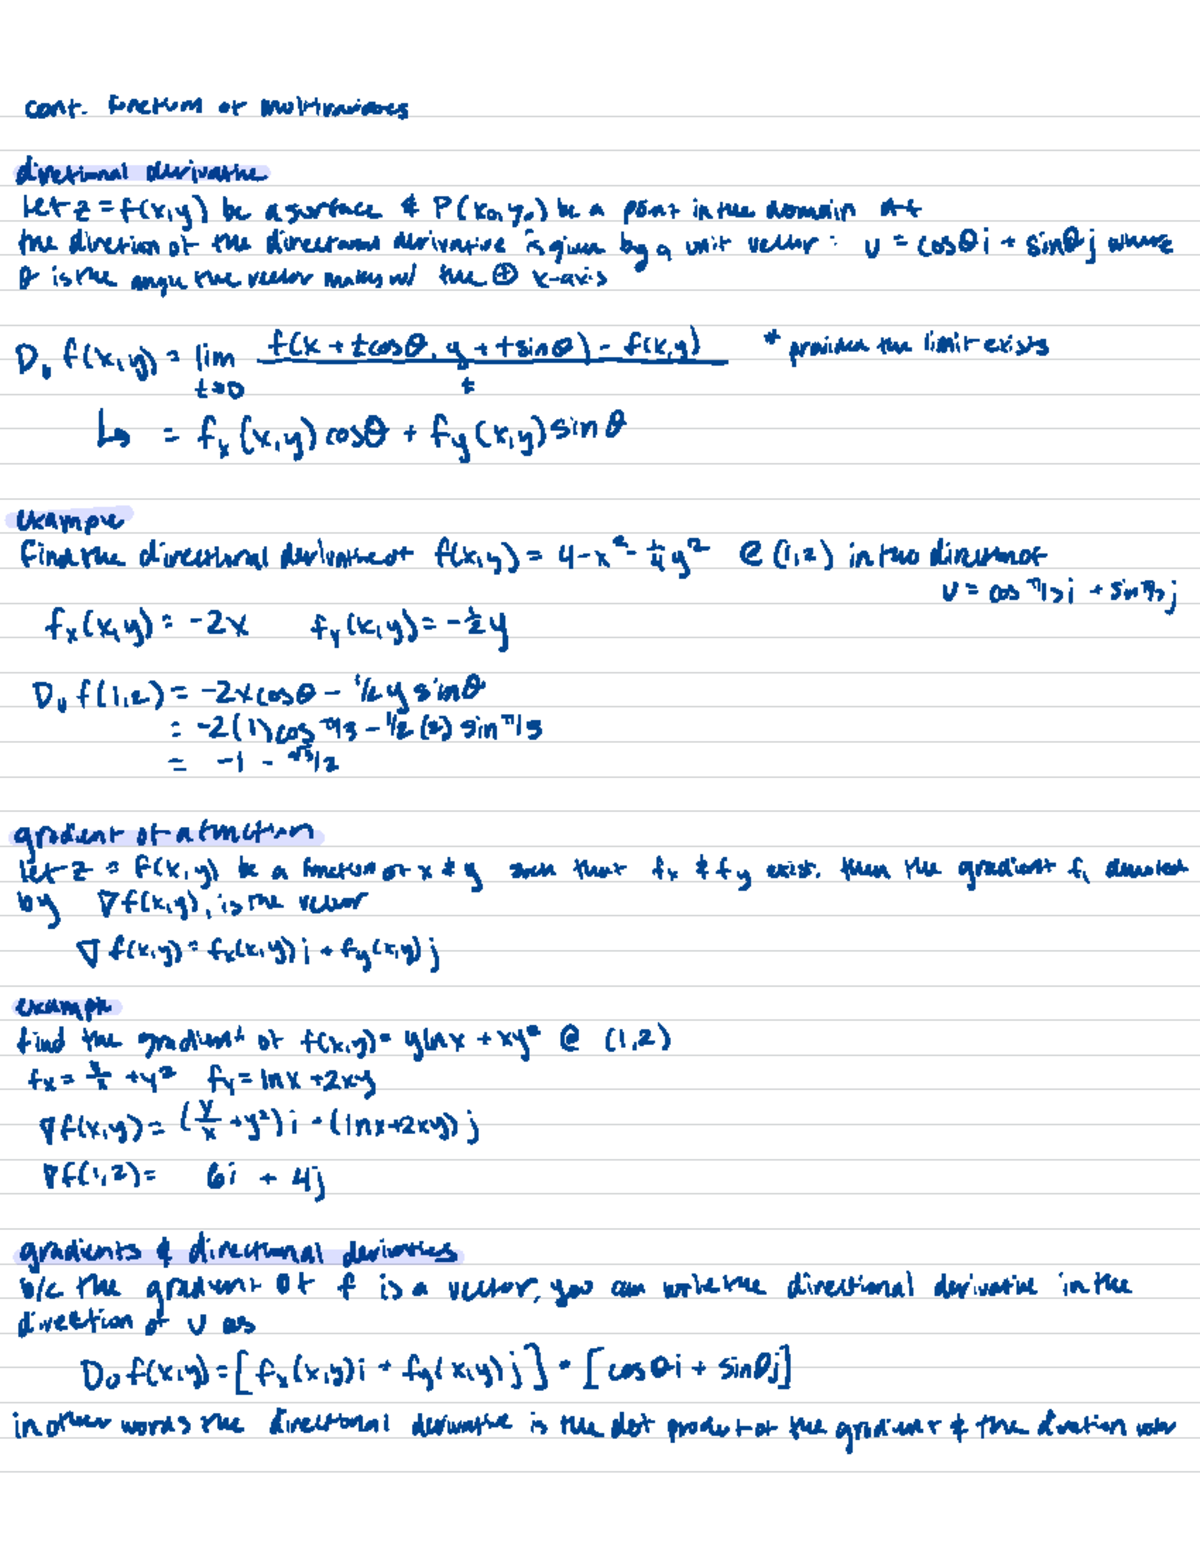 cont. function of multivariables
directional derivative
Let z = f(x,y) be a surface & P(x₀,y₀) be a point in the domain of f
the direction of the directional derivative is given by a unit vector: u = cosθi + sinθj where
θ is the angle the vector makes w/ the ⊕ x-axis
Dᵤ f(x,y) = lim t→0 f(x + tcosθ, y + tsinθ) - f(x,y) / t * provided the limit exists
↳ = fₓ(x,y) cosθ + f_y(x,y) sinθ
example
Find the directional derivative of f(x,y) = 4 - x² - ¼y² @ (1,2) in the direction of
u = cos π/3 i + sin π/3 j
fₓ(x,y) = -2x f_y(x,y) = -½y
Dᵤ f(1,2) = -2xcosθ - 1/2 y sinθ
= -2(1)cos π/3 - 1/2 (2) sin π/3
= -1 - √3/2
gradient of a function
let z = f(x,y) be a function of x & y such that fₓ & f_y exist. then the gradient f, denoted
by ∇f(x,y), is the vector
∇f(x,y) = fₓ(x,y)i + f_y(x,y)j
example
find the gradient of f(x,y) = ylnx + xy² @ (1,2)
fₓ = y/x + y² f_y = lnx + 2xy
∇f(x,y) = (y/x + y²)i + (lnx+2xy)j
∇f(1,2) = 6i + 4j
gradients & directional derivatives
b/c the gradient of f is a vector, you can write the directional derivative in the
direction of u as
Dᵤ f(x,y) = [fₓ(x,y)i + f_y(x,y)j] • [cosθi + sinθj]
in other words the directional derivative is the dot product of the gradient & the direction vector